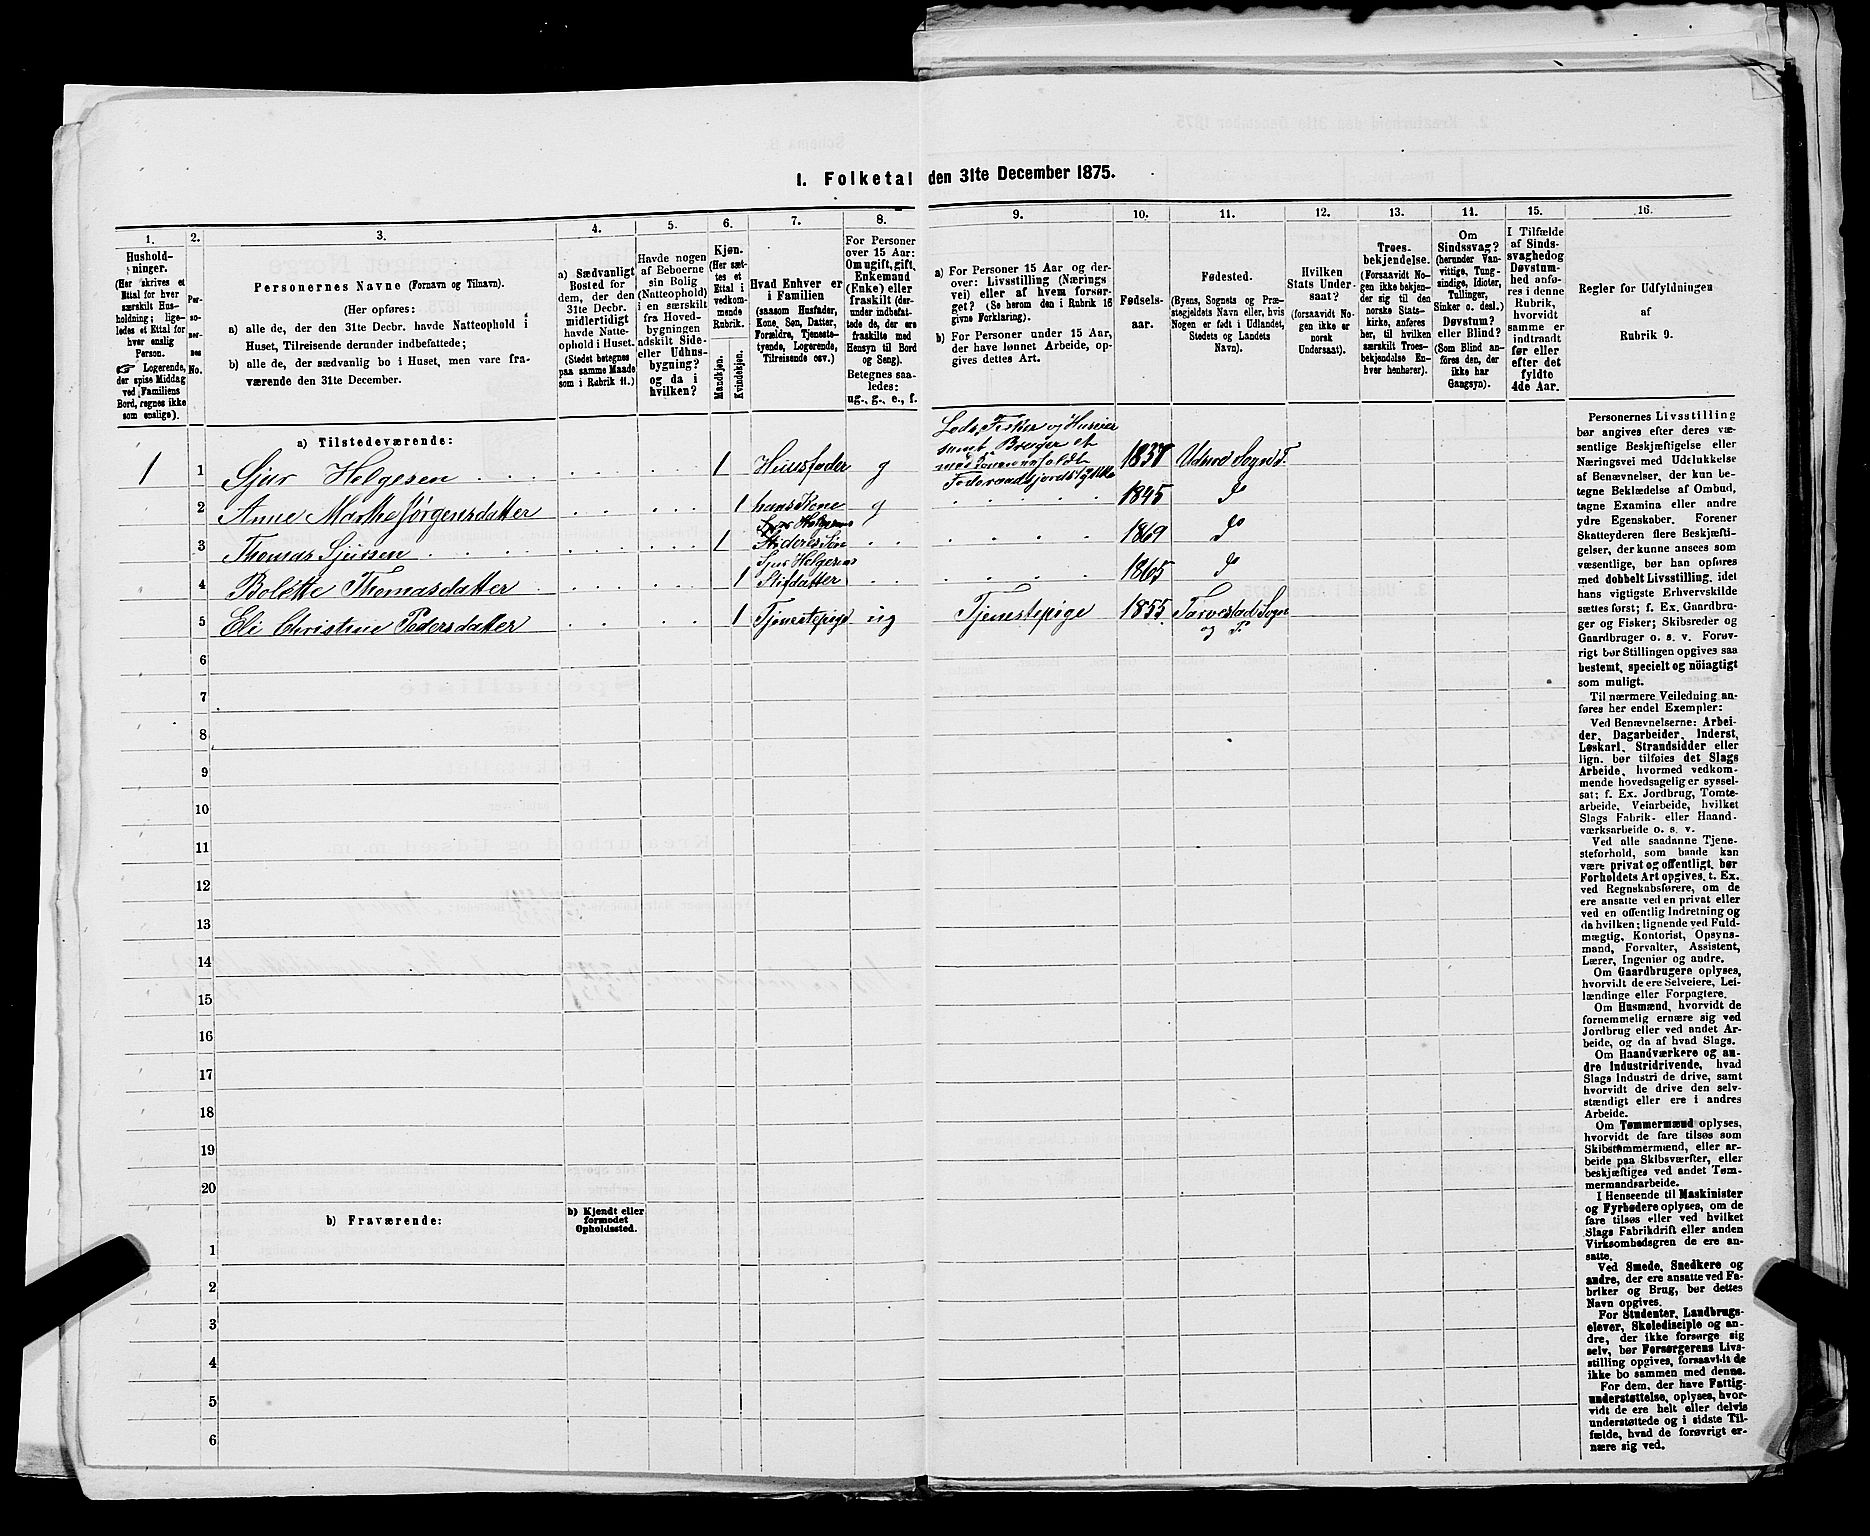 I. Folketal den 31te December 1875.
1.
2.
3.
4.
5.
6.
7.
8.
9.
10.
11.
12.
13.
14.
15.
16.
Hushold-
ninger.
(Her skrives et
Ettal for hver
særskilt Hus-
holdning; lige-
ledes et Ettal for
hver enslig
Person.
☞ Logerende,
der spise Middag
ved Familiens
Bord, regnes ikke
som enslige).
Per-
so-
ner-
nes
No.
Personernes Navne (Fornavn og Tilnavn).
(Her opføres:
a) alle de, der den 31te Decbr. havde Natteophold i
Huset, Tilreisende derunder indbefattede;
b) alle de, der sædvanlig bo i Huset, men vare fra-
værende den 31te December.
a) Sædvanligt
Bosted for
dem, der den
31te Decbr.
midlertidigt
havde Natte-
ophold i Huset.
(Stedet betegnes
paa samme Maade
som i Rubrik 11.)
Havde nogen
af Beboerne
sin Bolig
(Natteophold)
i en særskilt
fra Hoved-
bygningen
adskilt Side-
eller Udhus-
bygning?
og da i
hvilken?
Kjøn.
(Her sæt-
tes et
Ettal i
vedkom-
mende
Rubrik.
Mandkjøn.
Kvindekjøn.
Hvad Enhver er
i Familien
(saasom Husfader,
Kone, Søn, Datter,
Forældre, Tjeneste-
tyende, Logerende,
Tilreisende osv.)
For Personer
over 15 Aar:
Om ugift, gift,
Enkemand
(Enke) eller
fraskilt (der-
under indbefat-
tede de, der ere
fraskilte med
Hensyn til Bord
og Seng).
Betegnes saa-
ledes:
ug., g., e., f.
a) For Personer 15 Aar og der-
over: Livsstilling (Nærings
vei) eller af hvem forsør-
get? (Se herom den i Rubrik 16
givne Forklaring).
b) For Personer under 15 Aar,
der have lønnet Arbeide, op-
gives dettes Art.
Fødsels-
aar.
Fødested.
(Byens, Sognets og Præ-
stegjeldets Navn eller, hvis
Nogen er født i Udlandet,
Stedets og Landets
Navn).
Hvilken
Stats Under-
saat?
(forsaavidt No-
gen ikke er
norsk
Undersaat).
Troes-
bekjendelse.
(Forsaavidt No-
gen ikke bekjen-
der sig til den
norske Stats-
kirke, anføres
her, til hvilken
særskilt Troes-
bekjendelse En-
hver henhører).
Om
Sindssvag?
(herunder Van-
vittige, Idioter,
Tullinger,
Sinker o. desl.)
Døvstum?
eller Blind?
(Som Blind an-
føres den, der
ikke har
Gangsyn).
I Tilfælde
af Sinds-
svaghed og
Døvstum-
hed anfø-
res i denne
Rubrik,
hvorvidt
samme er
indtraadt
før eller
efter det
fyldte
4de Aar.
Regler for Udfyldningen
af
Rubrik 9.
a) Tilstedeværende:
1 1 Sjur Helgesen 1 Huusfader g Lods, Fisker og Huseier
samt Bruger et
1837 Udsire Sogn
2 Anne Marthe Jørgensdatter 1 hans Kone g 1845 do
3 Thomas Sjursen 1 Sjur Helgesens
Søn 1869 do
4 Bolette Thomasdatter 1 Sjur Helgesens
Stifdatter 1865 do
5 Eli Christine Pedersdatter 1 Tjenestepige ug Tjenestepige 1855 Torvestad Sogn
og P.
6
7
8
9
10
11
12
13
14
15
16
17
18
19
20
b) Fraværende:
b) Kjendt eller
formodet
Opholdssted.
1
2
3
4
5
6
Personernes Livsstilling
bør angives efter deres væ-
sentlige Beskjæftigelse eller
Næringsvei med Udelukkelse
af Benævnelser, der kun be-
tegne Beklædelse af Ombud,
tagne Examina eller andre
ydre Egenskaber. Forener
Skatteyderen flere Beskjæfti-
gelser, der kunne ansees som
væsentlige, bør han opføres
med dobbelt Livsstilling, idet
hans vigtigste Erhvervskilde
sættes først; f. Ex. Gaardbru-
ger og Fisker; Skibsreder og
Gaardbruger o. s. v. Forøv-
rigt bør Stillingen opgives saa
bestemt, specielt og nöiagtigt
som muligt.
Til nærmere Veiledning an-
føres her endel Exempler:
Ved Benævnelserne: Arbei-
der, Dagarbeider, Inderst,
Løskarl, Strandsidder eller
lign. bør tilføies det Slags
Arbeide, hvormed vedkom-
mende hovedsagelig er syssel-
sat; f. Ex. Jordbrug, Tomte-
arbeide, Veiarbeide, hvilket
Slags Fabrik- eller Haand-
værksarbeide o. s. v.
Ved alle saadanne Tjene-
steforhold, som baade kan
være privat og offentligt, bør
Forholdets Art opgives, t. Ex.
ved Regnskabsførere, om de
ere ansatte ved en privat eller
ved en offentlig Indretning og
da hvilken; lignende ved Fuld-
mægtig, Kontorist, Opsyns-
mand, Forvalter, Assistent,
Lærer, Ingeniør og andre.
Om Gaardbrugere oplyses,
hvorvidt de ere Selveiere, Lei-
lændinge eller Forpagtere.
Om Husmænd, hvorvidt de
fornemmelig ernære sig ved
Jordbrug eller ved andet Ar-
beide, og da af hvad Slags.
Om Haandværkere og an-
dre Industridrivende, hvad
Slags Industri de drive, samt
hvorvidt de drive den selv-
stændigt eller ere i andres
Arbeide.
Om Tømmermænd oplyses,
hvorvidt de fare tilsøs som
Skibstømmermænd, eller ar-
beide paa Skibsværfter, eller
beskjæftiges ved andet Tøm-
mermandsarbeide.
I Henseende til Maskinister
og Fyrbødere oplyses, om de
fare tilsøs eller ved hvilket
Slags Fabrikdrift eller anden
Virksomhedsgren de ere an-
satte.
Ved Smede, Snedkere og
andre, der ere ansatte ved Fa-
briker og Brug, bør dettes
Navn opgives.
For Studenter, Landbrugs-
elever, Skoledisciple og an-
dre, der ikke forsørge sig
selv, bør Forsørgerens Livs-
stilling opgives, forsaavidt de
ikke bo sammen med denne.
For dem, der have Fattig-
understøttelse, oplyses, hvor-
vidt de ere helt eller delvis
understøttede og i sidste Til-
fælde, hvad de forøvrigt er-
nære sig ved.